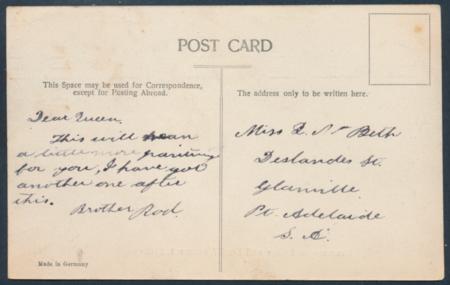 POST CARD
This Space may be used for Correspondence,
except for Posting Abroad.
The address only to be written here.
Dear Queen.
This will
a little more painting
for you, I have got
another one after
this.
Brother Rod.
Miss Beth
Deslandes St.
Glanville
Pt. Adelaide
S. A.
Made in Germany